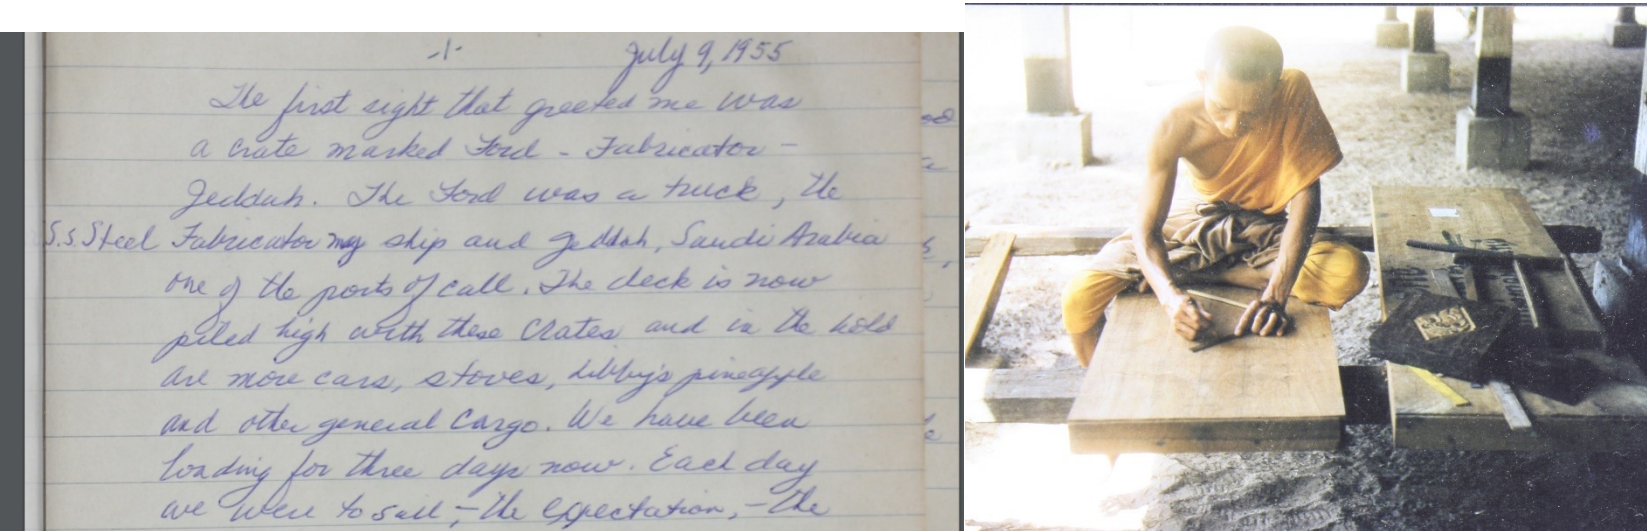 -1-
July 9, 1955
The first sight that greeted me was
a crate marked Ford - Fabricator -
Jeddah. The Ford was a truck, the
S.S Steel Fabricator my ship and Jeddah, Saudi Arabia
one of the ports of call. The deck is now
piled high with these crates and in the hold
are more cars, stoves, Libby's pineapple
and other general cargo. We have been
loading for three days now. Each day
we were to sail, - the expectation, - the